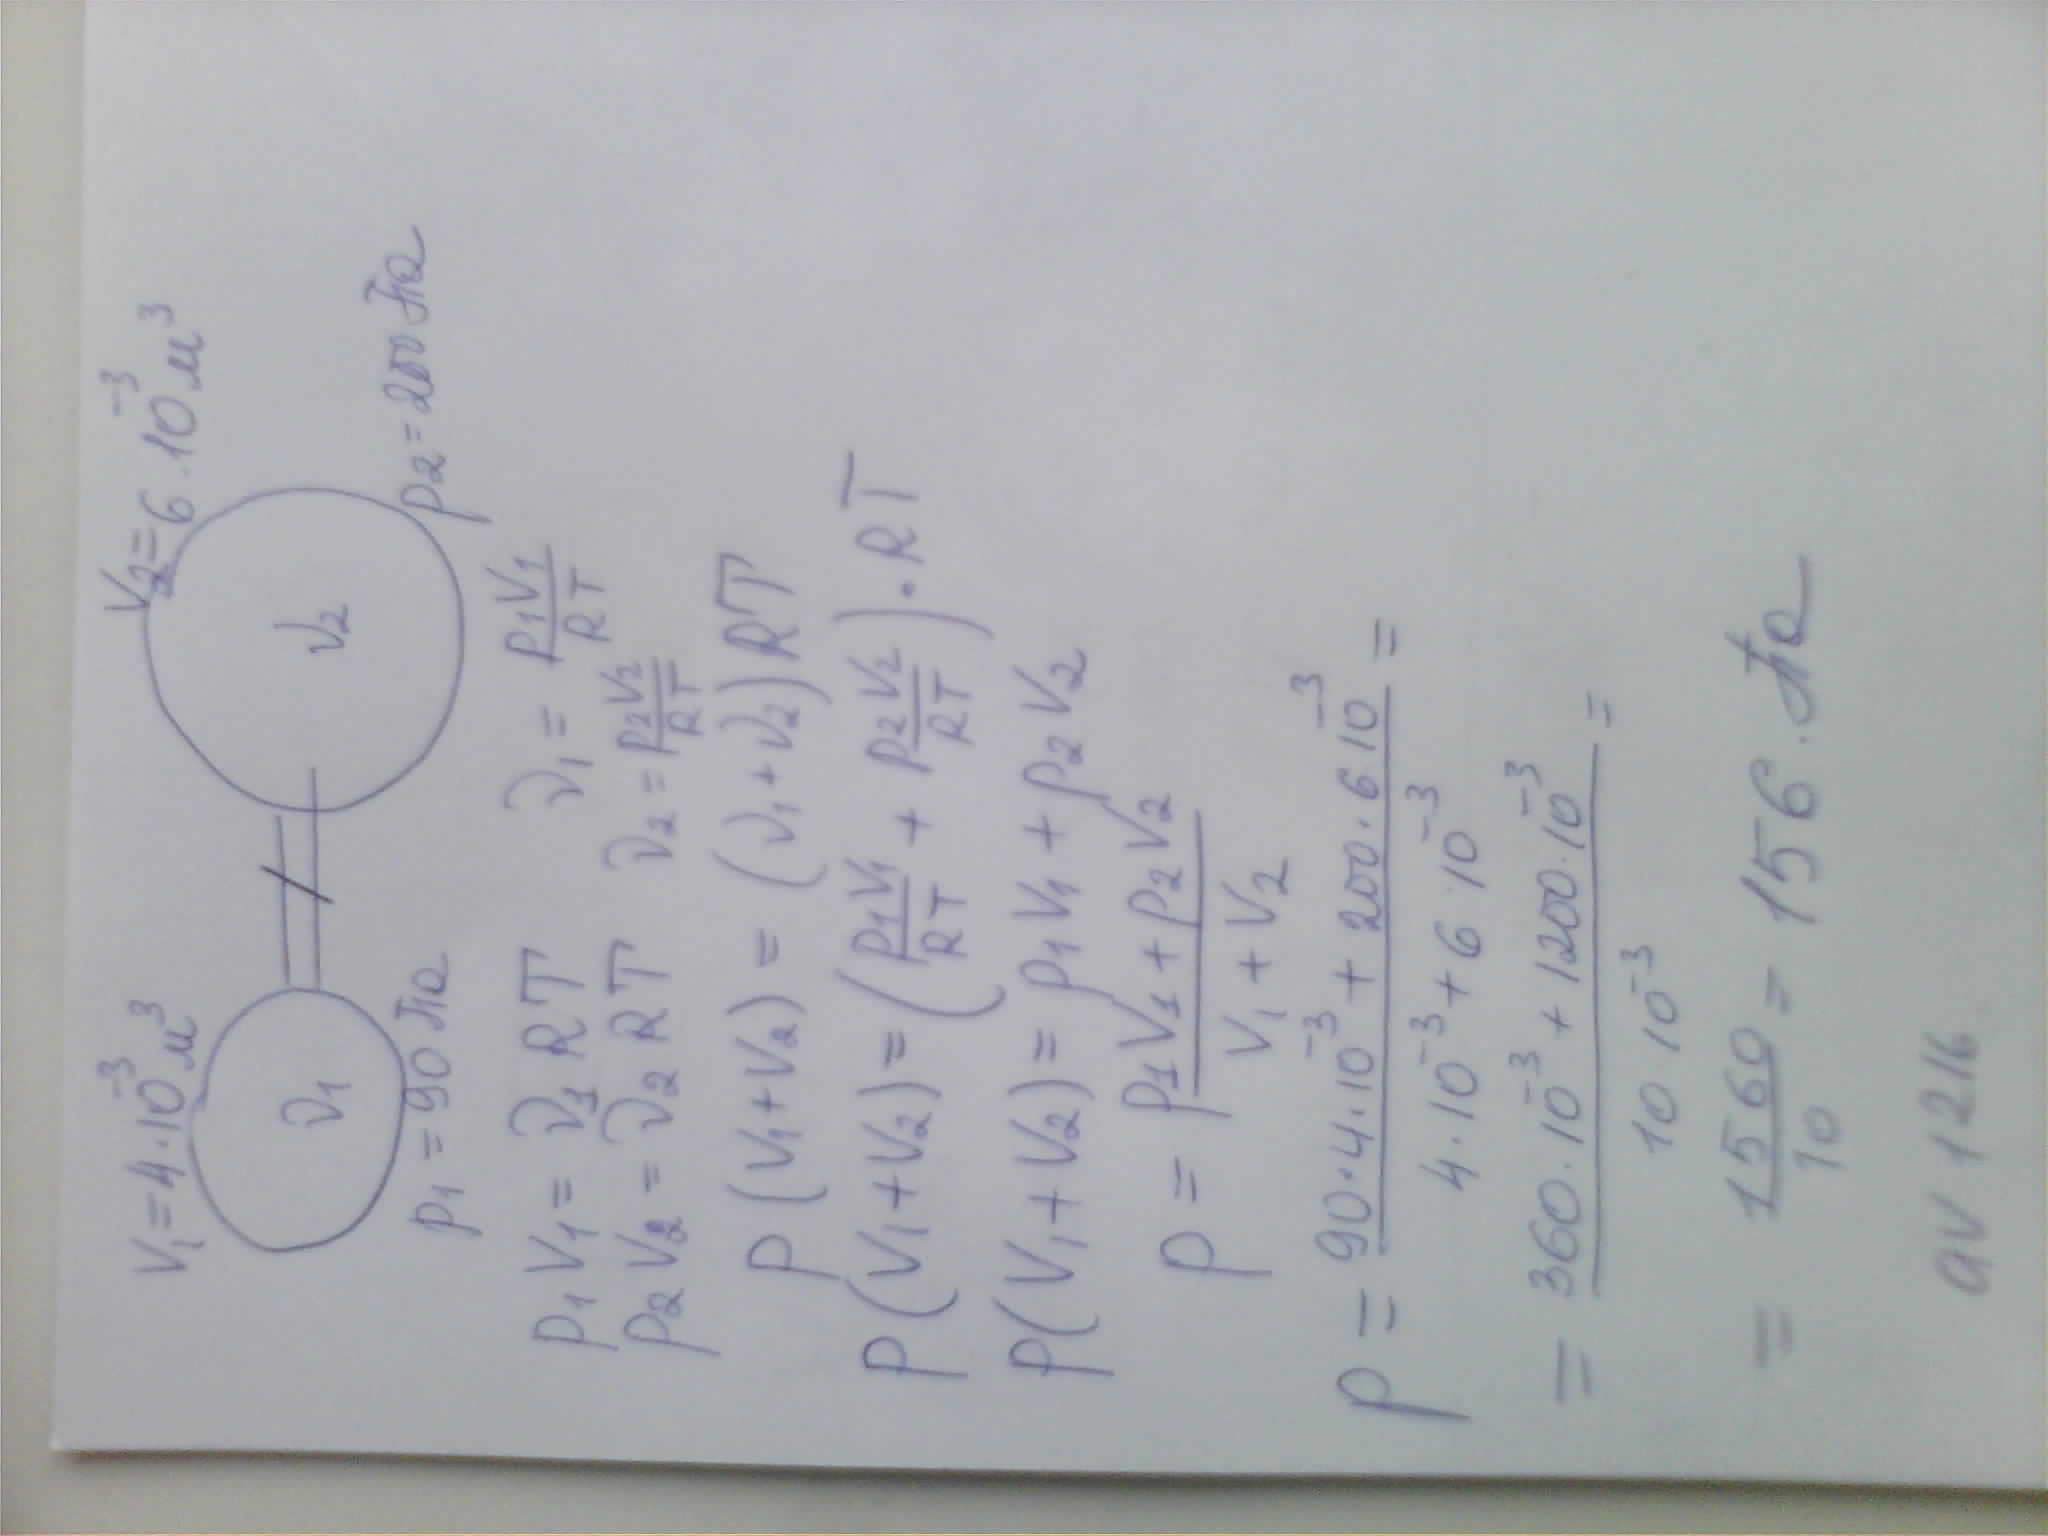 V₁ = 4·10⁻³ м³
V₂ = 6·10⁻³ м³
ν₁
ν₂
p₁ = 90 Па
p₂ = 200 Па
p₁V₁ = ν₁RT ν₁ = p₁V₁/RT
p₂V₂ = ν₂RT ν₂ = p₂V₂/RT
p(V₁+V₂) = (ν₁+ν₂)RT
p(V₁+V₂) = (p₁V₁/RT + p₂V₂/RT)·RT
p(V₁+V₂) = p₁V₁ + p₂V₂
p = (p₁V₁ + p₂V₂)/(V₁ + V₂)
p = (90·4·10⁻³ + 200·6·10⁻³)/(4·10⁻³ + 6·10⁻³) =
= (360·10⁻³ + 1200·10⁻³)/(10·10⁻³) =
= 1560/10 = 156·Па
av 1216